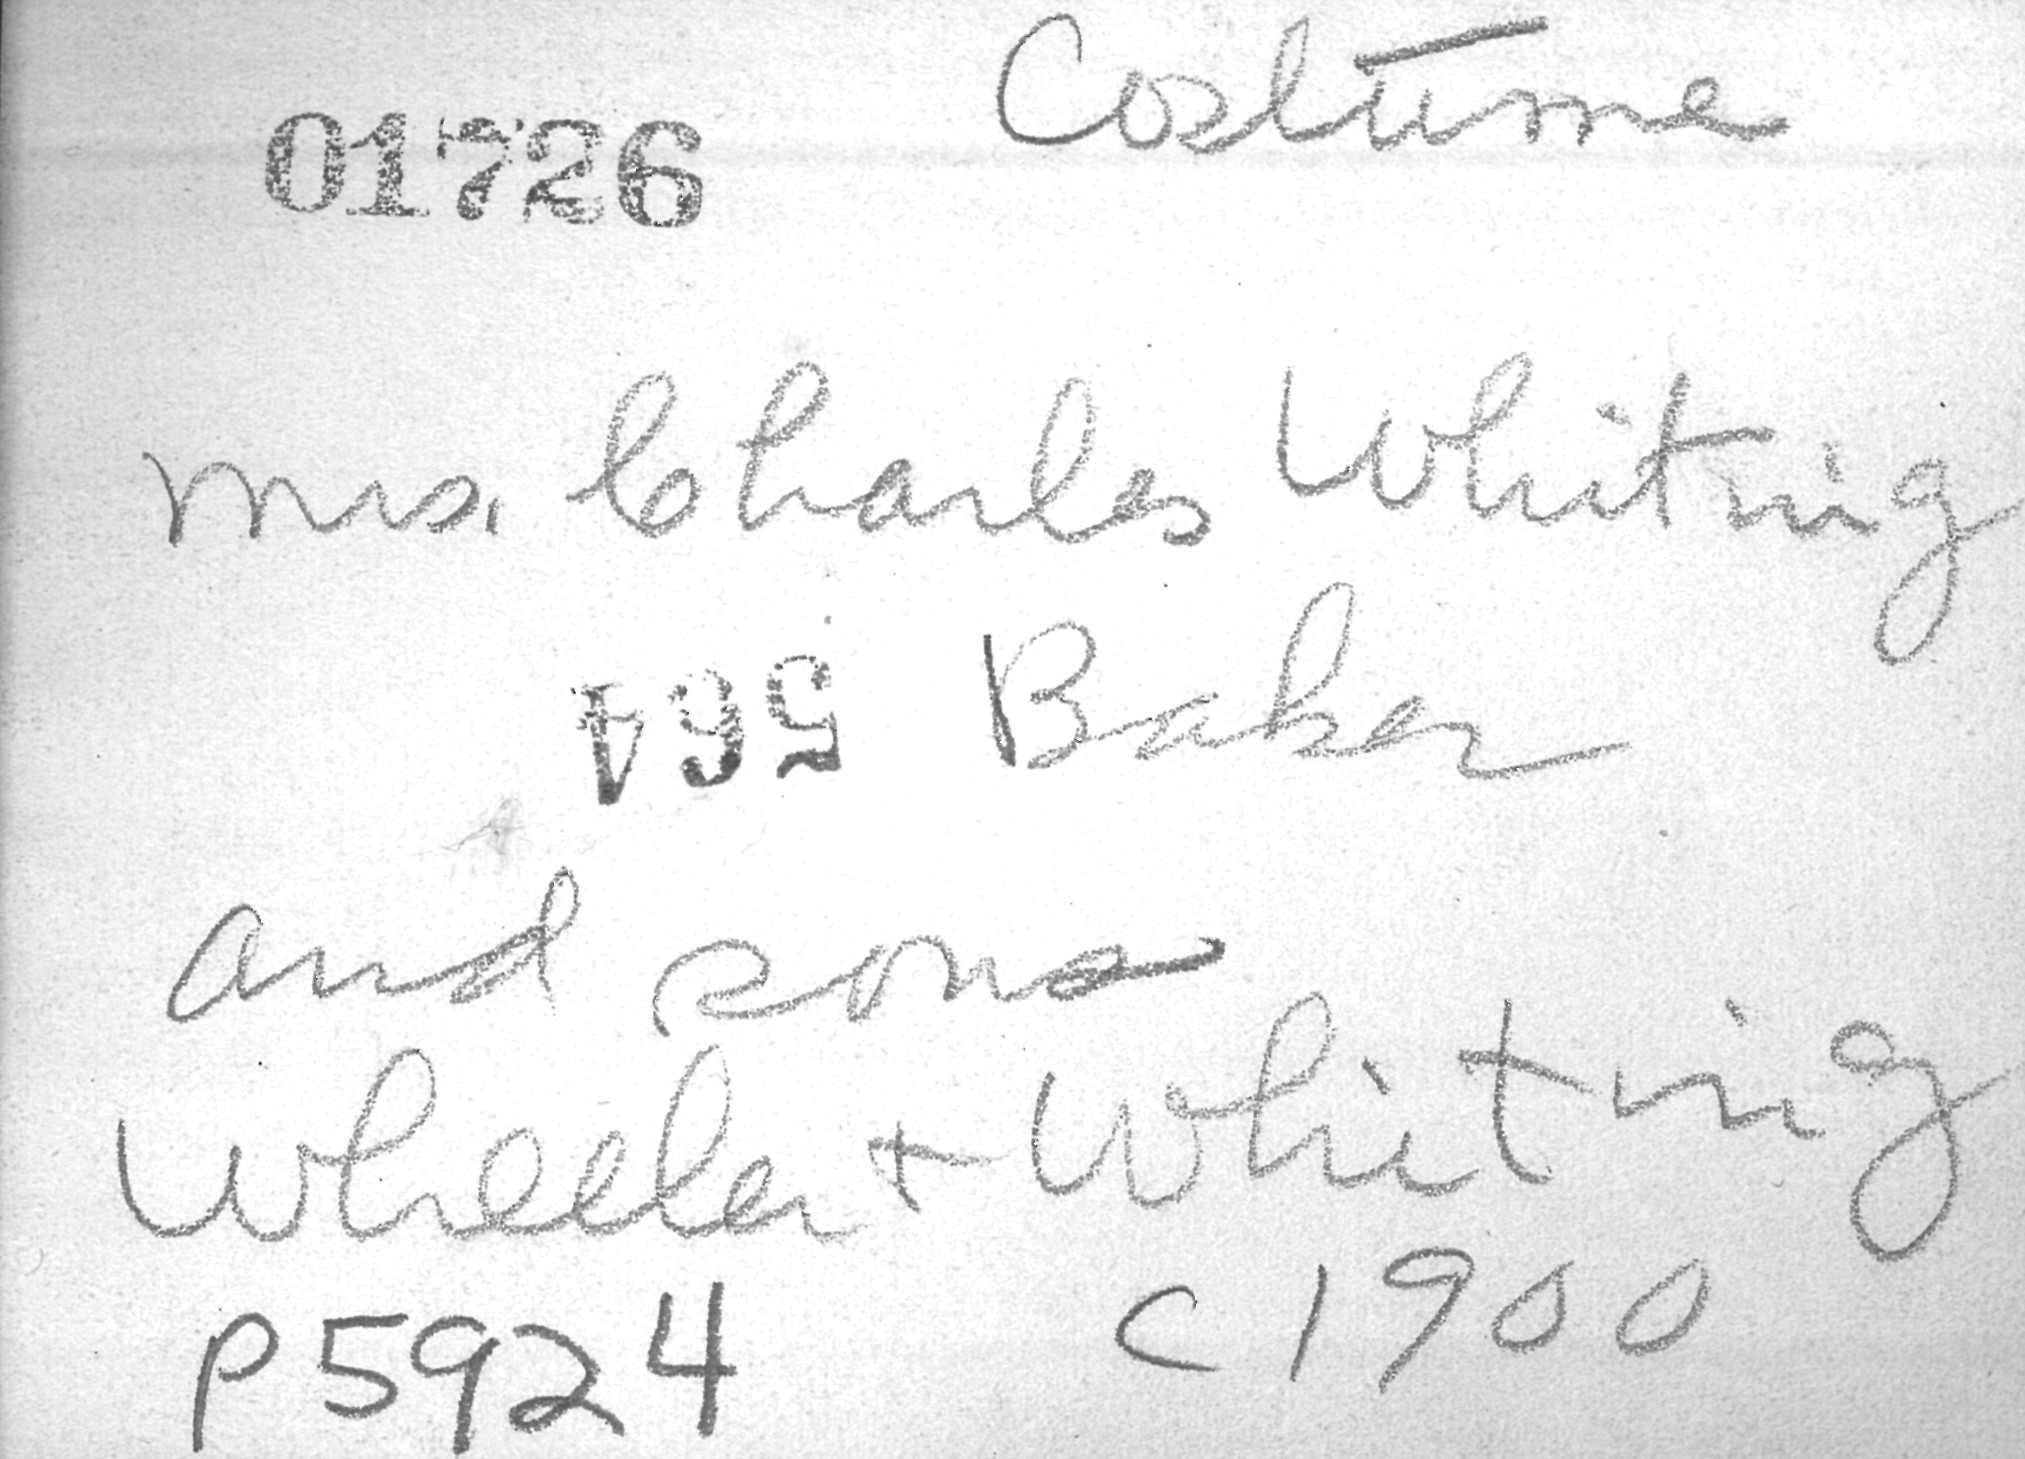 Costume
01726
Mrs. Charles Whiting
Baker
and sons
Wheeler + Whiting
P5924 c1900